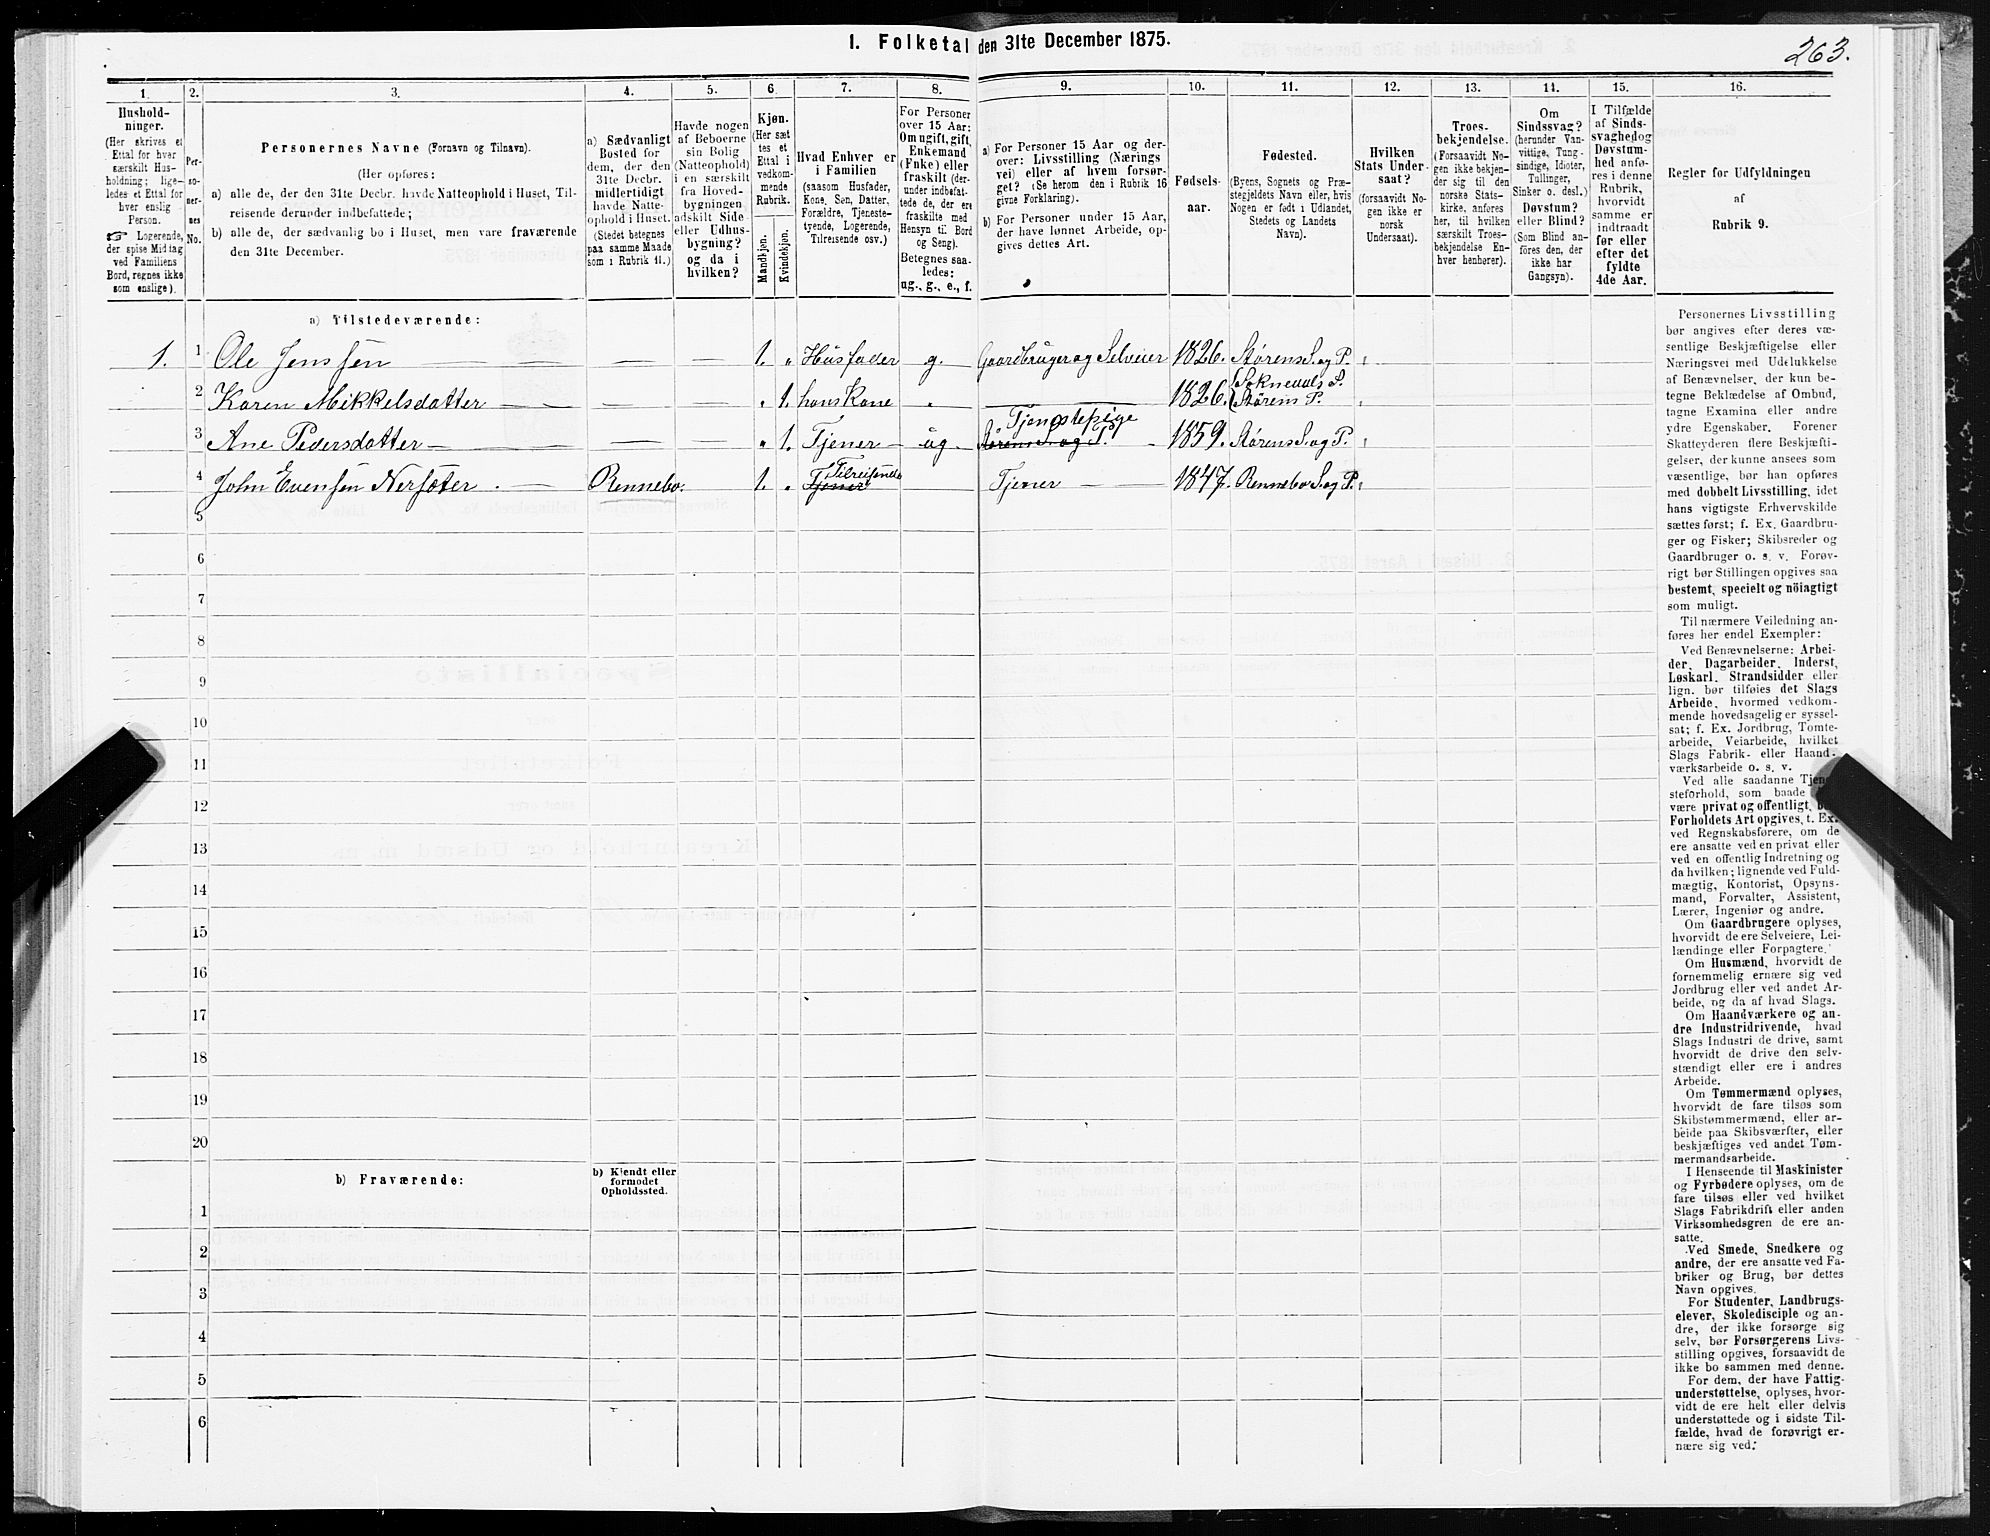 1. Folketal den 31te December 1875.
263.
1. 2. 3. 4. 5. 6. 7. 8. 9. 10. 11. 12. 13. 14. 15. 16.
Hushold-
ninger.
(Her skrives et
Ettal for hver
særskilt Hus-
holdning; lige-
ledes et Ettal for
hver enslig
Person.
☞ Logerende,
der spise Middag
ved Familiens
Bord, regnes ikke
som enslige).
Per-
so-
ner-
nes
No.
Personernes Navne (Fornavn og Tilnavn).
(Her opføres:
a) alle de, der den 31te Decbr. havde Natteophold i Huset, Til-
reisende derunder indbefattede;
b) alle de, der sædvanlig bo i Huset, men vare fraværende
den 31te December.
a) Sædvanligt
Bosted for
dem, der den
31te Decbr.
midlertidigt
havde Natte-
ophold i Huset.
(Stedet betegnes
paa samme Maade
som i Rubrik 11.)
Havde nogen
af Beboerne
sin Bolig
(Natteophold)
i en særskilt
fra Hoved-
bygningen
adskilt Side-
eller Udhus-
bygning?
og da i
hvilken?
Kjøn.
(Her sæt
tes et
Ettal i
vedkom-
mende
Rubrik.
Mandkjøn.
Kvindekjøn.
Hvad Enhver er
i Familien
(saasom Husfader,
Kone, Søn, Datter,
Forældre, Tjeneste-
tyende, Logerende,
Tilreisende osv.)
For Personer
over 15 Aar:
Om ugift, gift,
Enkemand
(Enke) eller
fraskilt (der-
under indbefat-
tede de, der ere
fraskilte med
Hensyn til Bord
og Seng).
Betegnes saa-
ledes:
ug., g., e., f.
a) For Personer 15 Aar og der-
over: Livsstilling (Nærings
vei) eller af hvem forsør-
get? (Se herom den i Rubrik 16
givne Forklaring).
b) For Personer under 15 Aar,
der have lønnet Arbeide, op-
gives dettes Art.
Fødsels-
aar.
Fødested.
(Byens, Sognets og Præ-
stegjeldets Navn eller, hvis
Nogen er født i Udlandet,
Stedets og Landets
Navn).
Hvilken
Stats Under-
saat?
(forsaavidt No-
gen ikke er
norsk
Undersaat).
Troes-
bekjendelse.
(Forsaavidt No-
gen ikke bekjen-
der sig til den
norske Stats-
kirke, anføres
her, til hvilken
særskilt Troes-
bekjendelse En-
hver henhører).
Om
Sindssvag?
(herunder Van-
vittige, Tung-
sindige, Idioter,
Tullinger,
Sinker o. desl.)
Døvstum?
eller Blind?
(Som Blind an-
føres den, der
ikke har
Gangsyn).
I Tilfælde
af Sinds-
svaghed og
Døvstum-
hed anfø-
res i denne
Rubrik,
hvorvidt
samme er
indtraadt
før eller
efter det
fyldte
4de Aar.
Regler for Udfyldningen
af
Rubrik 9.
a) Tilstedeværende:
1. 1 Ole Jenssen — — — 1. „ Husfader g. Gaardbruger og Selveier 1826. Størens S. og P.
2 Karen Mikkelsdatter — — — „ 1. hans Kone „ — 1826. Soknedals S. Størens P.
3 Ane Pedersdatter — — — „ 1. Tjener — ug. Tjenestepige Størens S. og P. — 1859. Størens S. og P.
4 John Evensen Nersøter. — Rennebo. 1. „ Tilreisende Tjener Tjener — 1847. Rennebo S. og P.
5
6
7
8
9
10
11
12
13
14
15
16
17
18
19
20
b) Fraværende:
b) Kjendt eller
formodet
Opholdssted.
1
2
3
4
5
6
Personernes Livsstilling
bør angives efter deres væ-
sentlige Beskjæftigelse eller
Næringsvei med Udelukkelse
af Benævnelser, der kun be-
tegne Beklædelse af Ombud,
tagne Examina eller andre
ydre Egenskaber. Forener
Skatteyderen flere Beskjæfti-
gelser, der kunne ansees som
væsentlige, bør han opføres
med dobbelt Livsstilling, idet
hans vigtigste Erhvervskilde
sættes først; f. Ex. Gaardbru-
ger og Fisker; Skibsreder og
Gaardbruger o. s. v. Forøv-
rigt bør Stillingen opgives saa
bestemt, specielt og nöiagtigt
som muligt.
Til nærmere Veiledning an-
føres her endel Exempler:
Ved Benævnelserne: Arbei-
der, Dagarbeider, Inderst,
Løskarl, Strandsidder eller
lign. bør tilføies det Slags
Arbeide, hvormed vedkom-
mende hovedsagelig er syssel-
sat; f. Ex. Jordbrug, Tomte-
arbeide, Veiarbeide, hvilket
Slags Fabrik- eller Haand-
værksarbeide o. s. v.
Ved alle saadanne Tjene-
steforhold, som baade
være privat og offentlig,
Forholdets Art opgives, t. Ex.
ved Regnskabsførere, om de
ere ansatte ved en privat eller
ved en offentlig Indretning og
da hvilken; lignende ved Fuld-
mægtig, Kontorist, Opsyns-
mand, Forvalter, Assistent,
Lærer, Ingeniør og andre.
Om Gaardbrugere oplyses,
hvorvidt de ere Selveiere, Lei-
lændinge eller Forpagtere.
Om Husmænd, hvorvidt de
fornemmelig ernære sig ved
Jordbrug eller ved andet Ar-
beide, og da af hvad Slags.
Om Haandværkere og an-
dre Industridrivende, hvad
Slags Industri de drive, samt
hvorvidt de drive den selv-
stændigt eller ere i andres
Arbeide.
Om Tømmermænd oplyses,
hvorvidt de fare tilsøs som
Skibstømmermænd, eller ar-
beide paa Skibsværfter, eller
beskjæftiges ved andet Tøm-
mermandsarbeide.
I Henseende til Maskinister
og Fyrbødere oplyses, om de
fare tilsøs eller ved hvilket
Slags Fabrikdrift eller anden
Virksomhedsgren de ere an-
satte.
Ved Smede, Snedkere og
andre, der ere ansatte ved Fa-
briker og Brug, bør dettes
Navn opgives.
For Studenter, Landbrugs-
elever, Skoledisciple og an-
dre, der ikke forsørge sig
selv, bør Forsørgerens Livs-
stilling opgives, forsaavidt de
ikke bo sammen med denne.
For dem, der have Fattig-
understøttelse, oplyses, hvor-
vidt de ere helt eller delvis
understøttede og i sidste Til-
fælde, hvad de forøvrigt er-
nære sig ved.